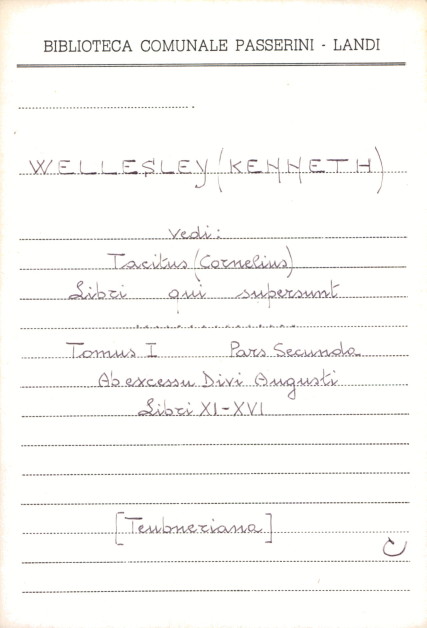 BIBLIOTECA COMUNALE PASSERINI - LANDI
WELLESLEY (KENNETH)
vedi:
Tacitus (Cornelius)
Libri qui supersunt
..................
Tomus I Pars Secunda
Ab excessu Divi Augusti
Libri XI-XVI
[Teubneriana]